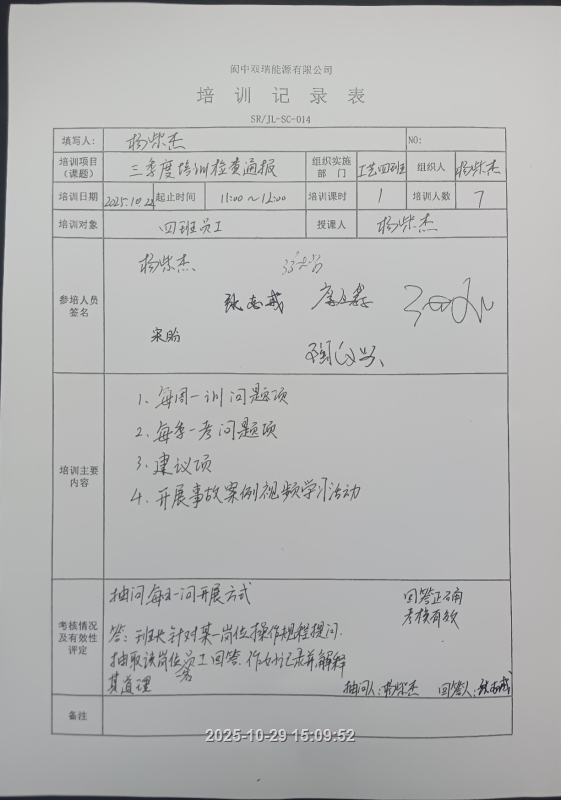 阆中双瑞能源有限公司
培训记录表
SR/JL-SC-014
填写人: 杨柴杰 NO:
培训项目(课题) 三季度培训检查通报 组织实施部门 工艺四班 组织人 杨柴杰
培训日期 2025.10.22 起止时间 11:00~12:00 培训课时 1 培训人数 7
培训对象 四班员工 授课人 杨柴杰
参培人员签名
杨柴杰
张志成
宋盼
培训主要内容
1. 每周一训问题项
2. 每季一考问题项
3. 建议项
4. 开展事故案例视频学习活动
考核情况及有效性评定
抽问每日一问开展方式
回答正确
考核有效
答:班长针对某一岗位操作规程提问.
抽取该岗位员工回答.作好记录并解释
其道理
抽问人:杨柴杰 回答人:张志成
备注
2025-10-29 15:09:52